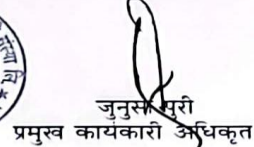 जुनुसा पुरी
प्रमुख कार्यकारी अधिकृत